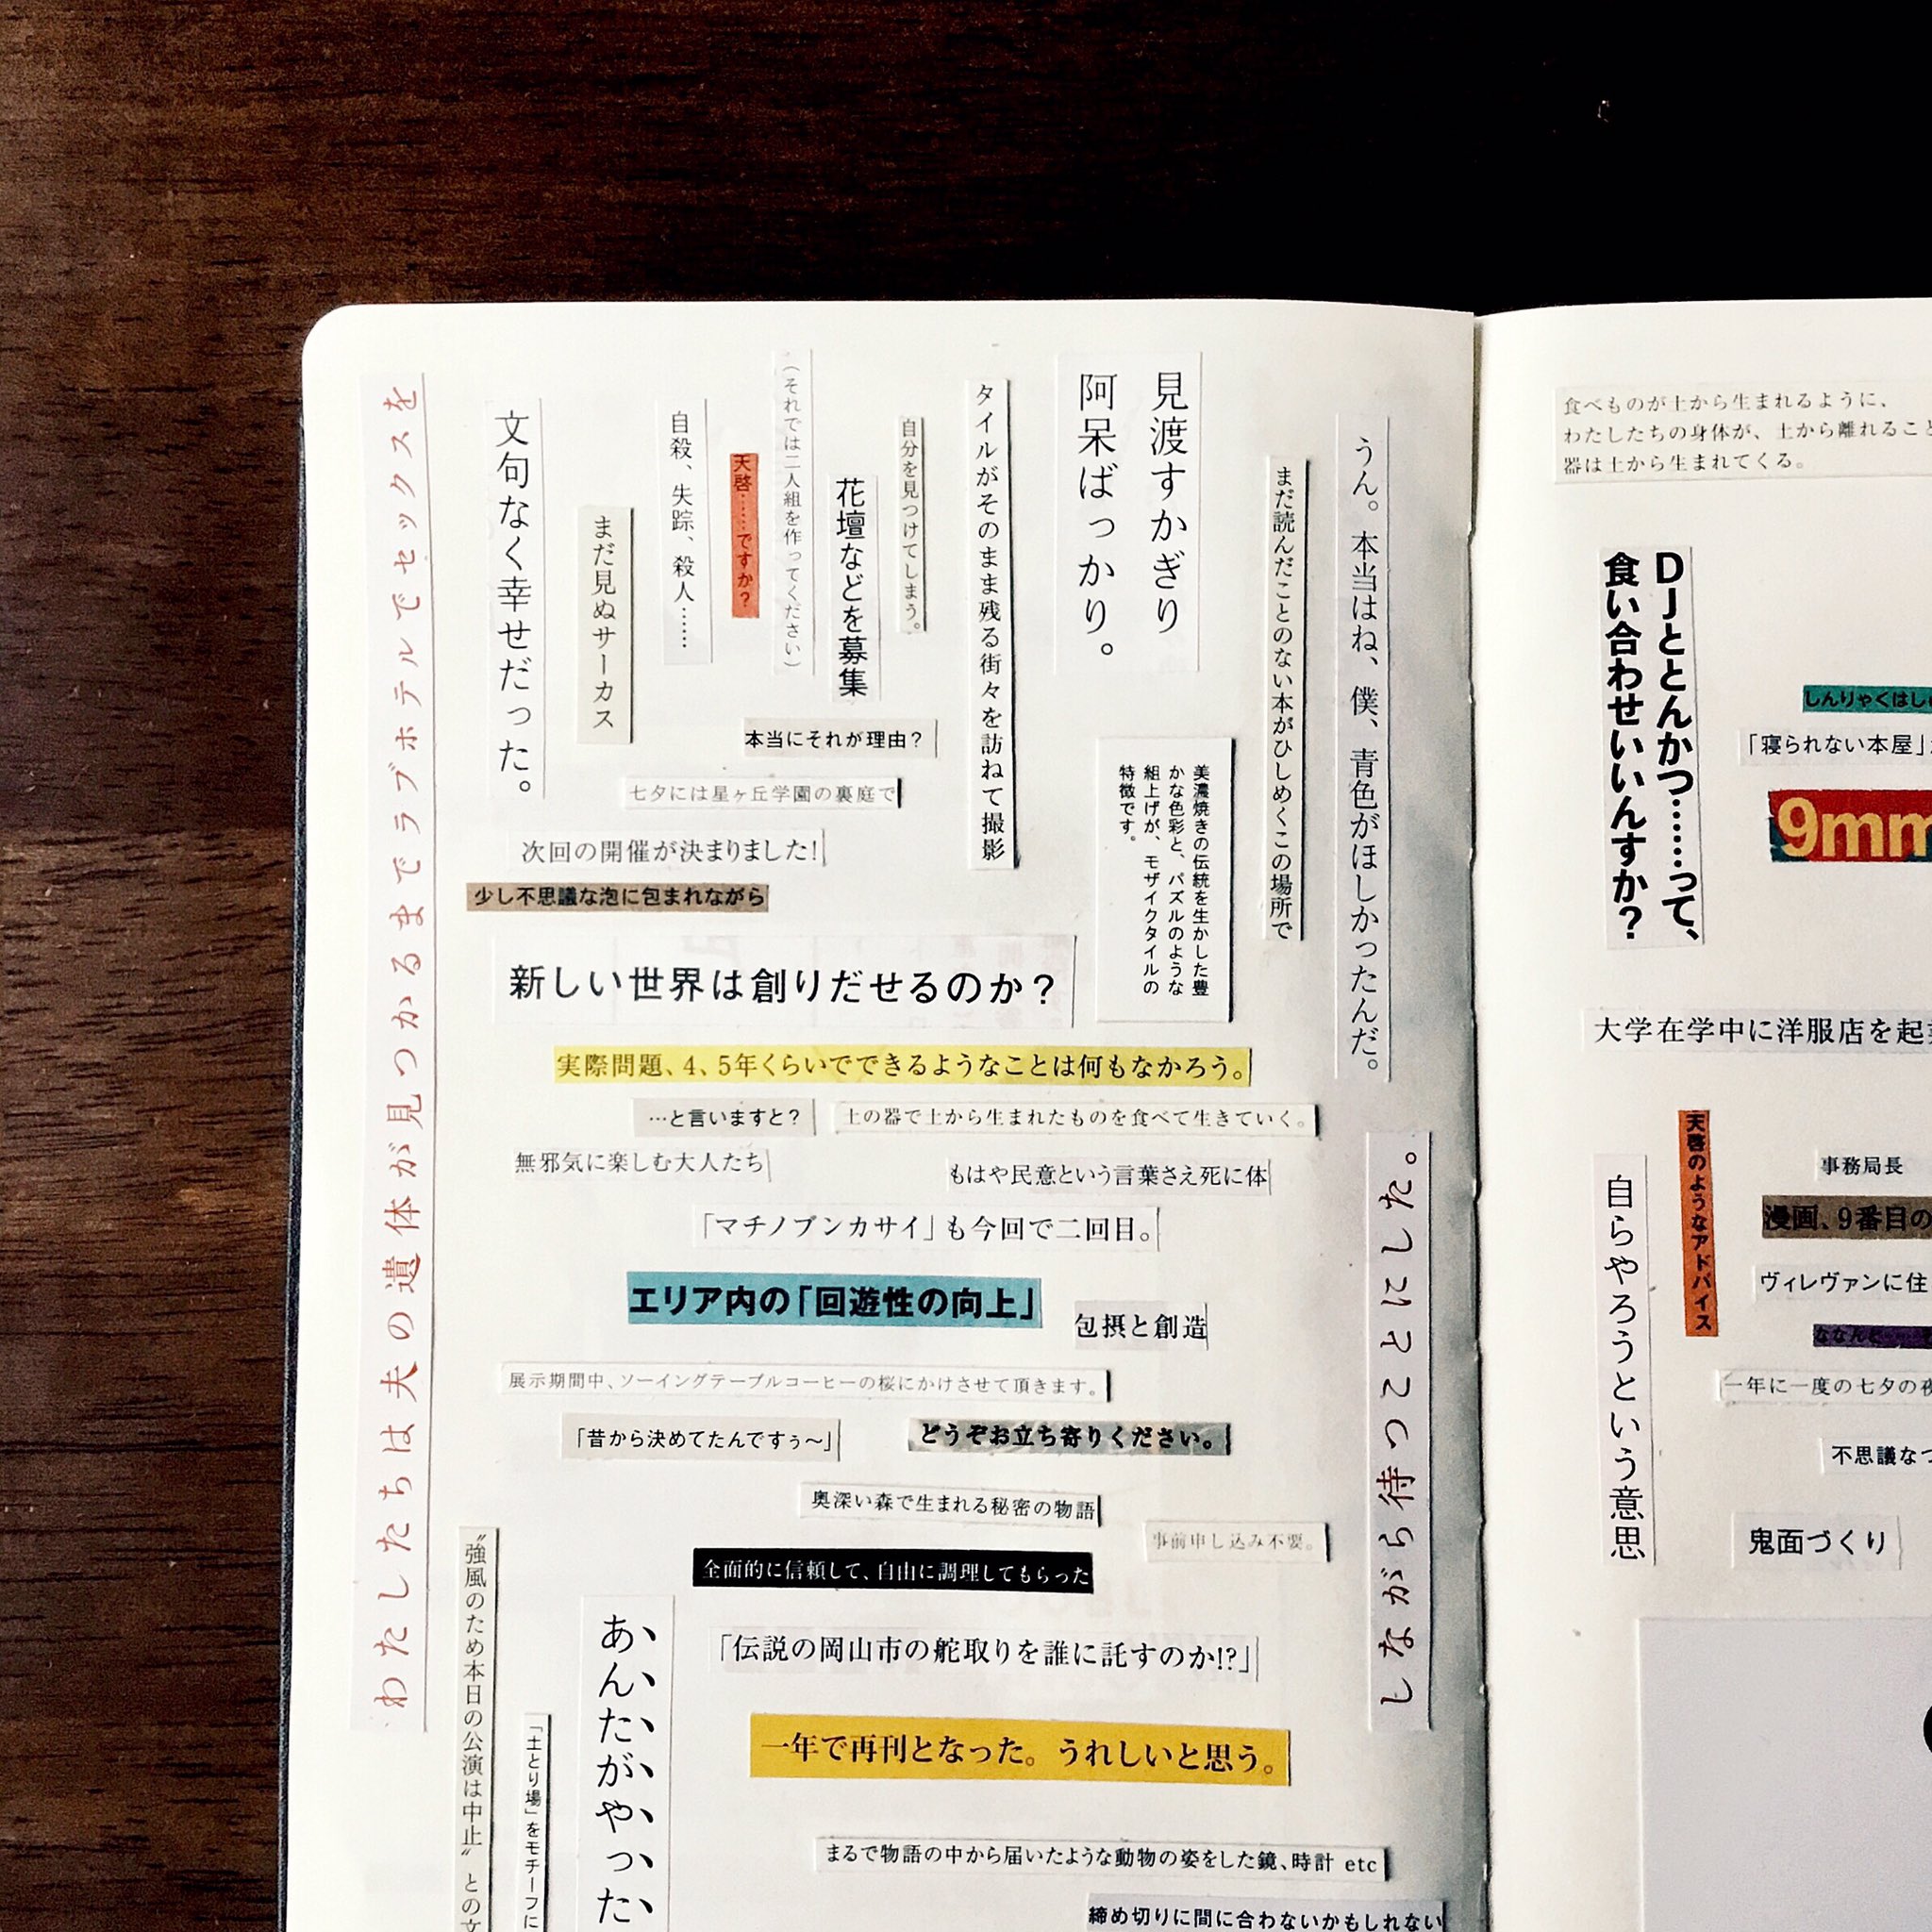 うん。本当はね、僕、青色がほしかったんだ。
まだ読んだことのない本がひしめくこの場所で
見渡すかぎり
阿呆ばっかり。
タイルがそのまま残る街々を訪ねて撮影
自分を見つけてしまう。
花壇などを募集
(それでは二人組を作ってください)
天啓……ですか?
自殺、失踪、殺人……
まだ見ぬサーカス
文句なく幸せだった。
わたしたちは夫の遺体が見つかるまでラブホテルでセックスを
しながら待つことにした。
本当にそれが理由?
七夕には星ヶ丘学園の裏庭で
次回の開催が決まりました!
少し不思議な泡に包まれながら
美濃焼きの伝統を生かした豊
かな色彩と、パズルのような
組上げが、モザイクタイルの
特徴です。
新しい世界は創りだせるのか?
実際問題、4、5年くらいでできるようなことは何もなかろう。
…と言いますと?
土の器で土から生まれたものを食べて生きていく。
無邪気に楽しむ大人たち
もはや民意という言葉さえ死に体
「マチノブンカサイ」も今回で二回目。
エリア内の「回遊性の向上」
包摂と創造
展示期間中、ソーイングテーブルコーヒーの桜にかけさせて頂きます。
「昔から決めてたんですぅ〜」
どうぞお立ち寄りください。
奥深い森で生まれる秘密の物語
事前申し込み不要。
全面的に信頼して、自由に調理してもらった
「伝説の岡山市の舵取りを誰に託すのか!?」
一年で再刊となった。うれしいと思う。
まるで物語の中から届いたような動物の姿をした鏡、時計 etc
締め切りに間に合わないかもしれない
あんたがやった
「土とり場」をモチーフに
〝強風のため本日の公演は中止〟との文
食べものが土から生まれるように、
わたしたちの身体が、土から離れること
器は土から生まれてくる。
DJととんかつ……って、
食い合わせいいんすか?
しんりゃくはし
「寝られない本屋」
9mm
大学在学中に洋服店を起
天啓のようなアドバイス
自らやろうという意思
事務局長
漫画、9番目の
ヴィレヴァンに住
ななんと
一年に一度の七夕の夜
不思議なつ
鬼面づくり